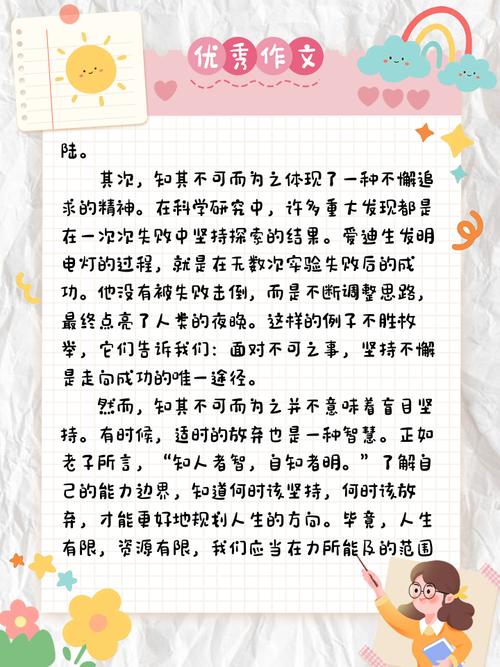 优秀作文
陆。
其次，知其不可而为之体现了一种不懈追
求的精神。在科学研究中，许多重大发现都是
在一次次失败中坚持探索的结果。爱迪生发明
电灯的过程，就是在无数次实验失败后的成
功。他没有被失败击倒，而是不断调整思路，
最终点亮了人类的夜晚。这样的例子不胜枚
举，它们告诉我们：面对不可之事，坚持不懈
是走向成功的唯一途径。
然而，知其不可而为之并不意味着盲目坚
持。有时候，适时的放弃也是一种智慧。正如
老子所言，“知人者智，自知者明。”了解自
己的能力边界，知道何时该坚持，何时该放
弃，才能更好地规划人生的方向。毕竟，人生
有限，资源有限，我们应当在力所能及的范围